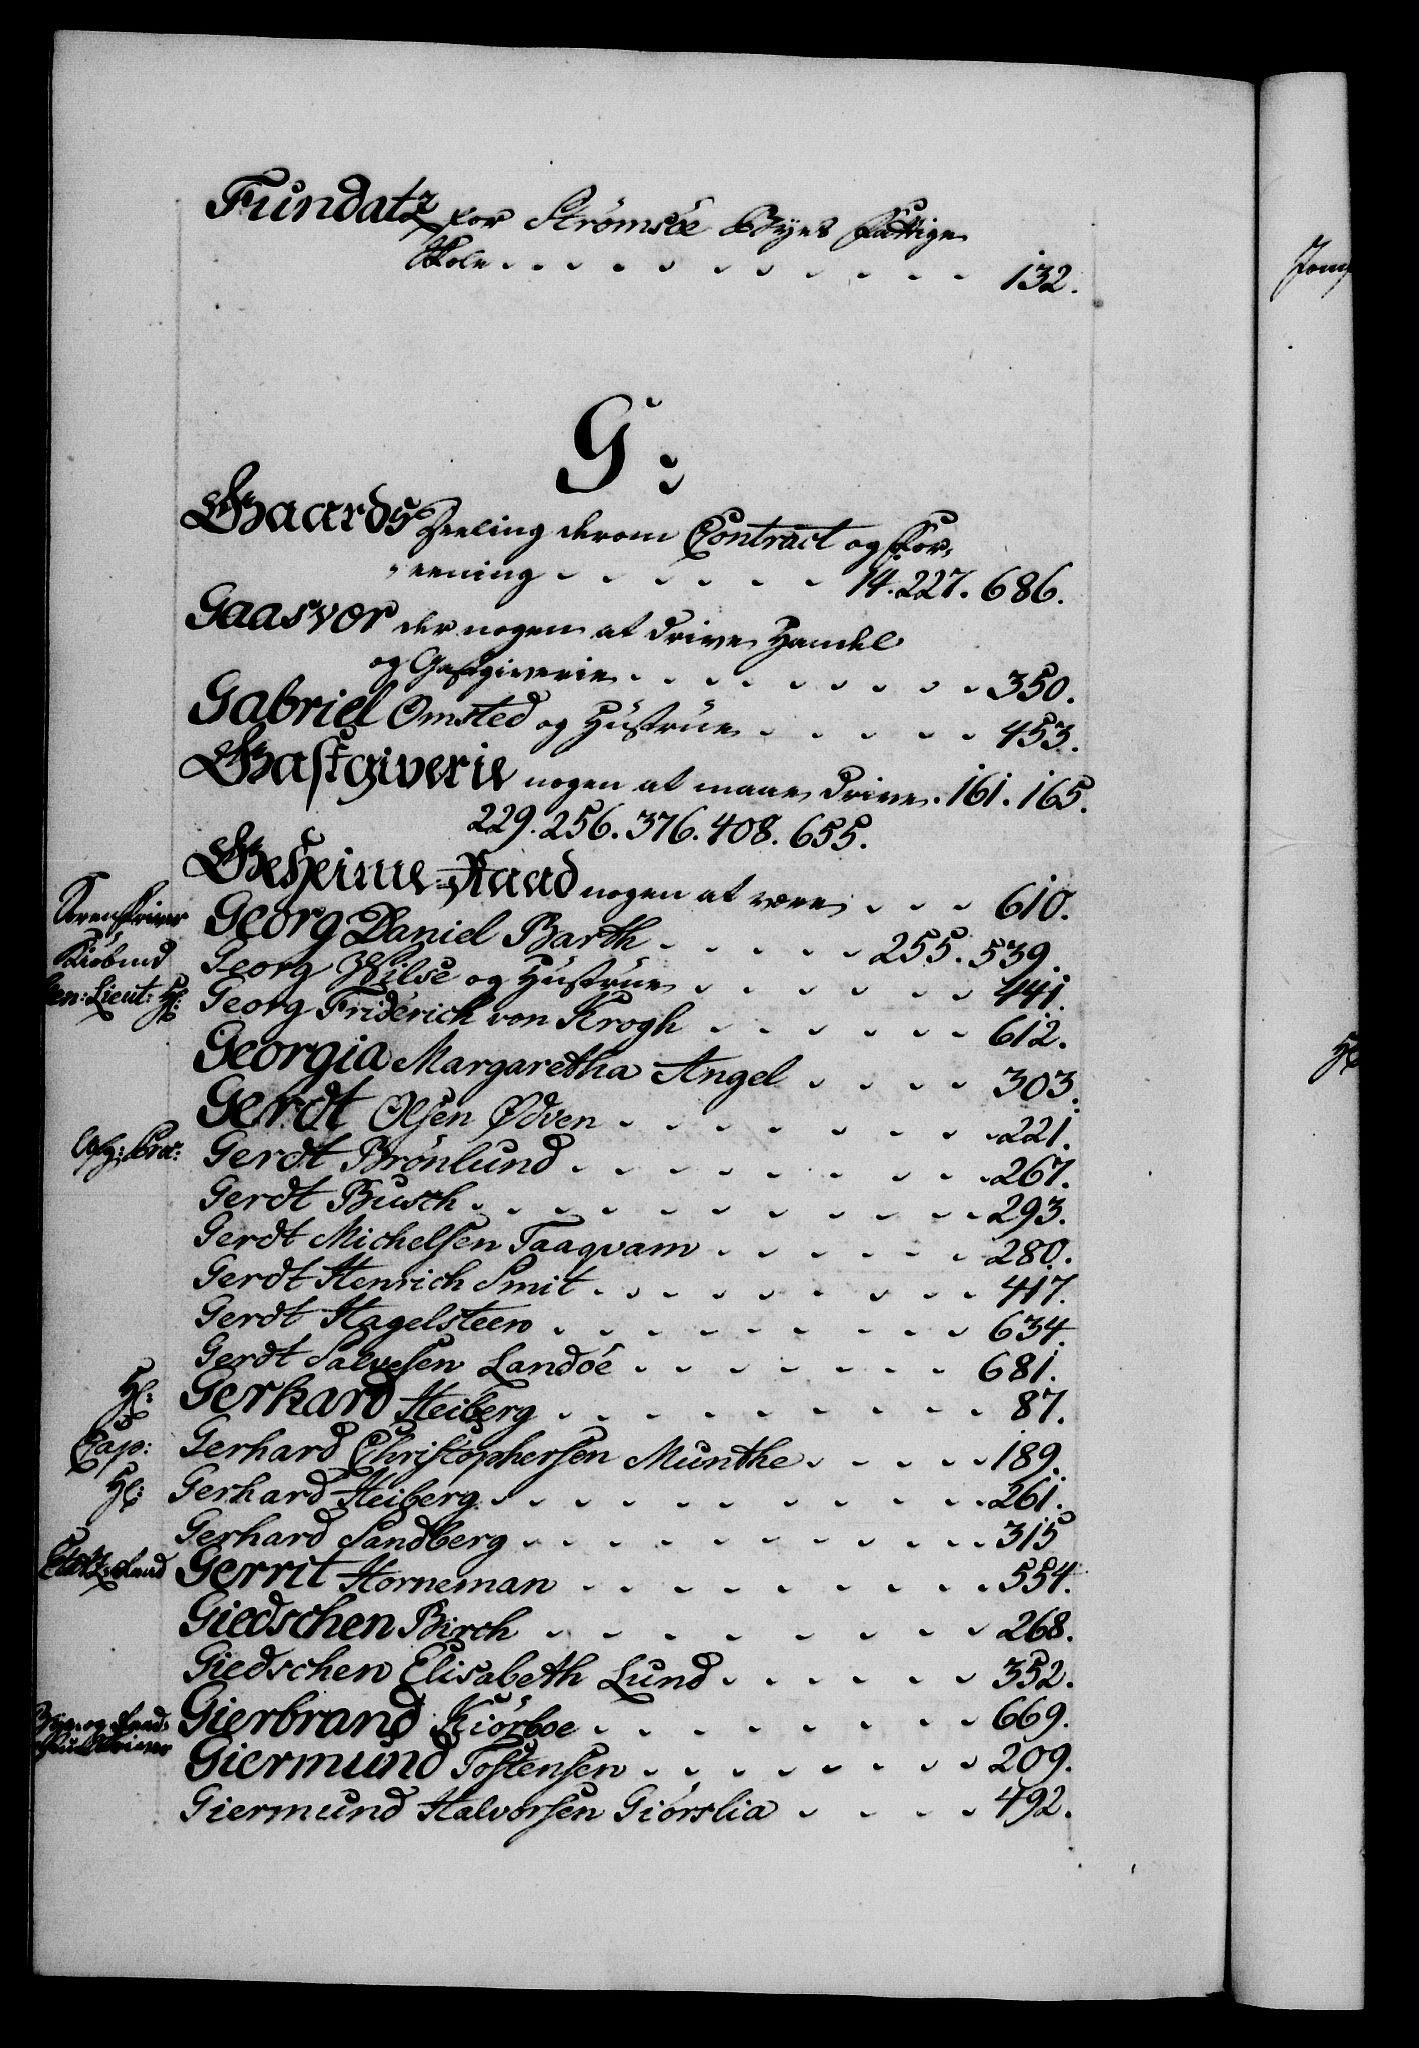 Fundatz for Strømsøe Byes Fattige
Skole . . . . . . . . . . 132.
G:
Gaards Deeling derom Contract og For-
eening . . . . . . 14. 227. 686.
Gaasvær der nogen at drive Handel
og Gæstgiverie . . . . . . . . 350.
Gabriel Omsted og Hustrue . . . . . 453.
Gastgiverie nogen at maae drive. 161. 165.
229. 256. 376. 408. 655.
Geheime-Raad nogen at være . . . 610.
Sorenskriver Georg Daniel Barth . . . . . 255. 539.
Kiøbmd Georg Wilse og Hustrue . . . . . . 441.
Gen: Lieut: Hr: Georg Friderich von Krogh . . . . . . 612.
Georgia Margaretha Angel . . . . 303.
Gerdt Olsen Ødven . . . . . . . . 221.
Gerdt Brønlund . . . . . . . . 267.
Gerdt Busch . . . . . . . . . . 293.
Gerdt Michelsen Taaqvam . . . . . . 280.
Gerdt Henrich Smit . . . . . . . . 417.
Gerdt Hagelsteen . . . . . . . . 634
Gerdt Salvesen Landøe . . . . . . . 681.
Hr: Gerhard Heiberg . . . . . . . . . 87.
Cap: Gerhard Christophersen Munthe . . . . . 189.
Hr: Gerhard Heiberg . . . . . . . . . . 261.
Gerhard Sandberg . . . . . . . . . 315
Etatz-Raad Gerrit Horneman . . . . . . . . 554.
Giedschen Birch . . . . . . . . 268.
Giedschen Elisabeth Lund . . . . . . 352.
Bye- og Raad- Gierbrand Kiørboe . . . . . . . . 669.
stueskriver Giermund Tostensen . . . . . . . 209.
Giermund Halvorsen Giørslia . . . . 492.